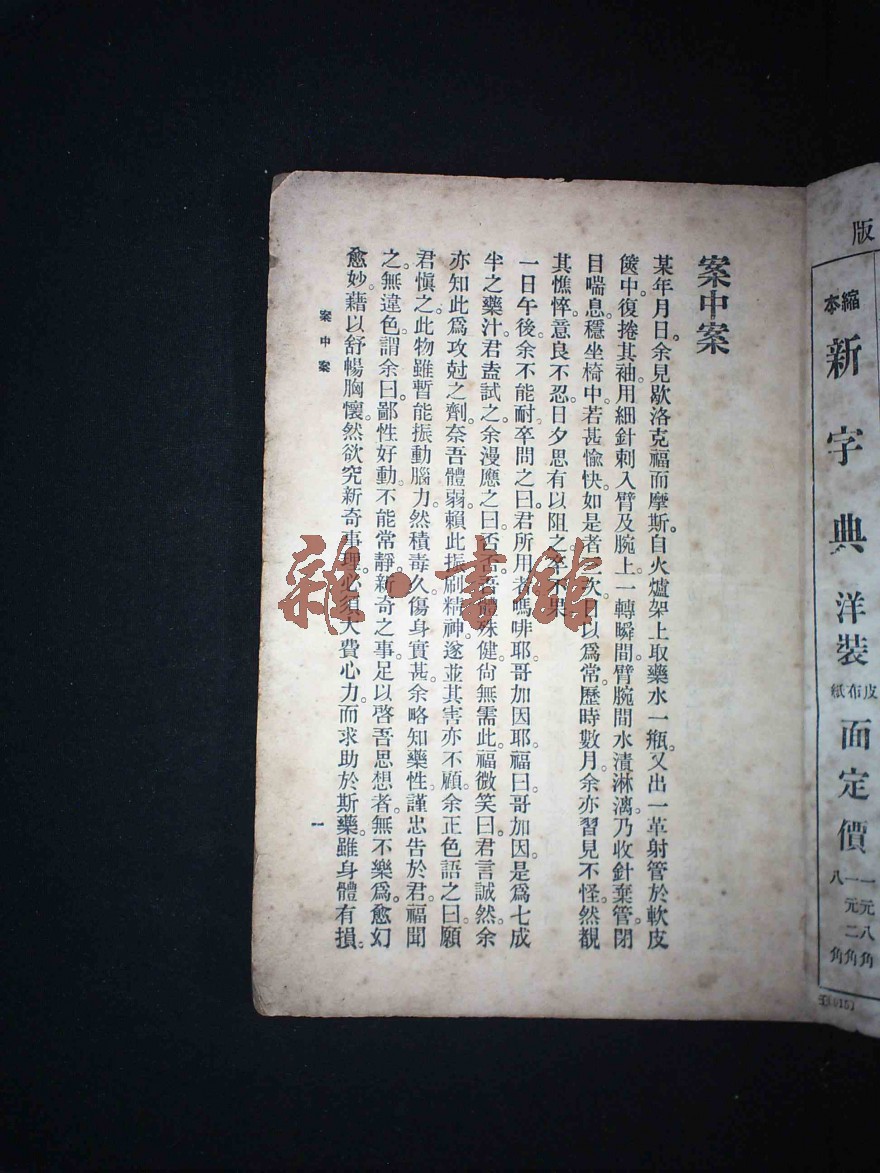 版
縮本
新字典
洋裝
皮布紙
面定價
一元八角
一元二角
八角
案中案
某年月日。余見歇洛克福而摩斯。自火爐架上取藥水一瓶。又出一革射管於軟皮
篋中。復捲其袖。用細針刺入臂及腕上。一轉瞬間。臂腕間水漬淋漓。乃收針棄管。閉
目喘息。穩坐椅中。若甚愉快。如是者次。日以爲常。歷時數月。余亦習見不怪。然覩
其憔悴。意良不忍。日夕思有以阻之。果
一日午後。余不能耐。卒問之曰。君所用者嗎啡耶。哥加因耶。福曰。哥加因。是爲七成
半之藥汁。君盍試之。余漫應之曰。否否。吾體殊健。尙無需此。福微笑曰。君言誠然。余
亦知此爲攻尅之劑。奈吾體弱。賴此振刷精神。遂並其害亦不顧。余正色語之曰。願
君愼之。此物雖暫能振動腦力。然積毒久。傷身實甚。余略知藥性。謹忠告於君。福聞
之。無違色。謂余曰。鄙性好動。不能常靜。新奇之事。足以啓吾思想者。無不樂爲。愈幻
愈妙。藉以舒暢胸懷。然欲究新奇事理。必須大費心力。而求助於斯藥。雖身體有損。
案中案
一
雜·書館